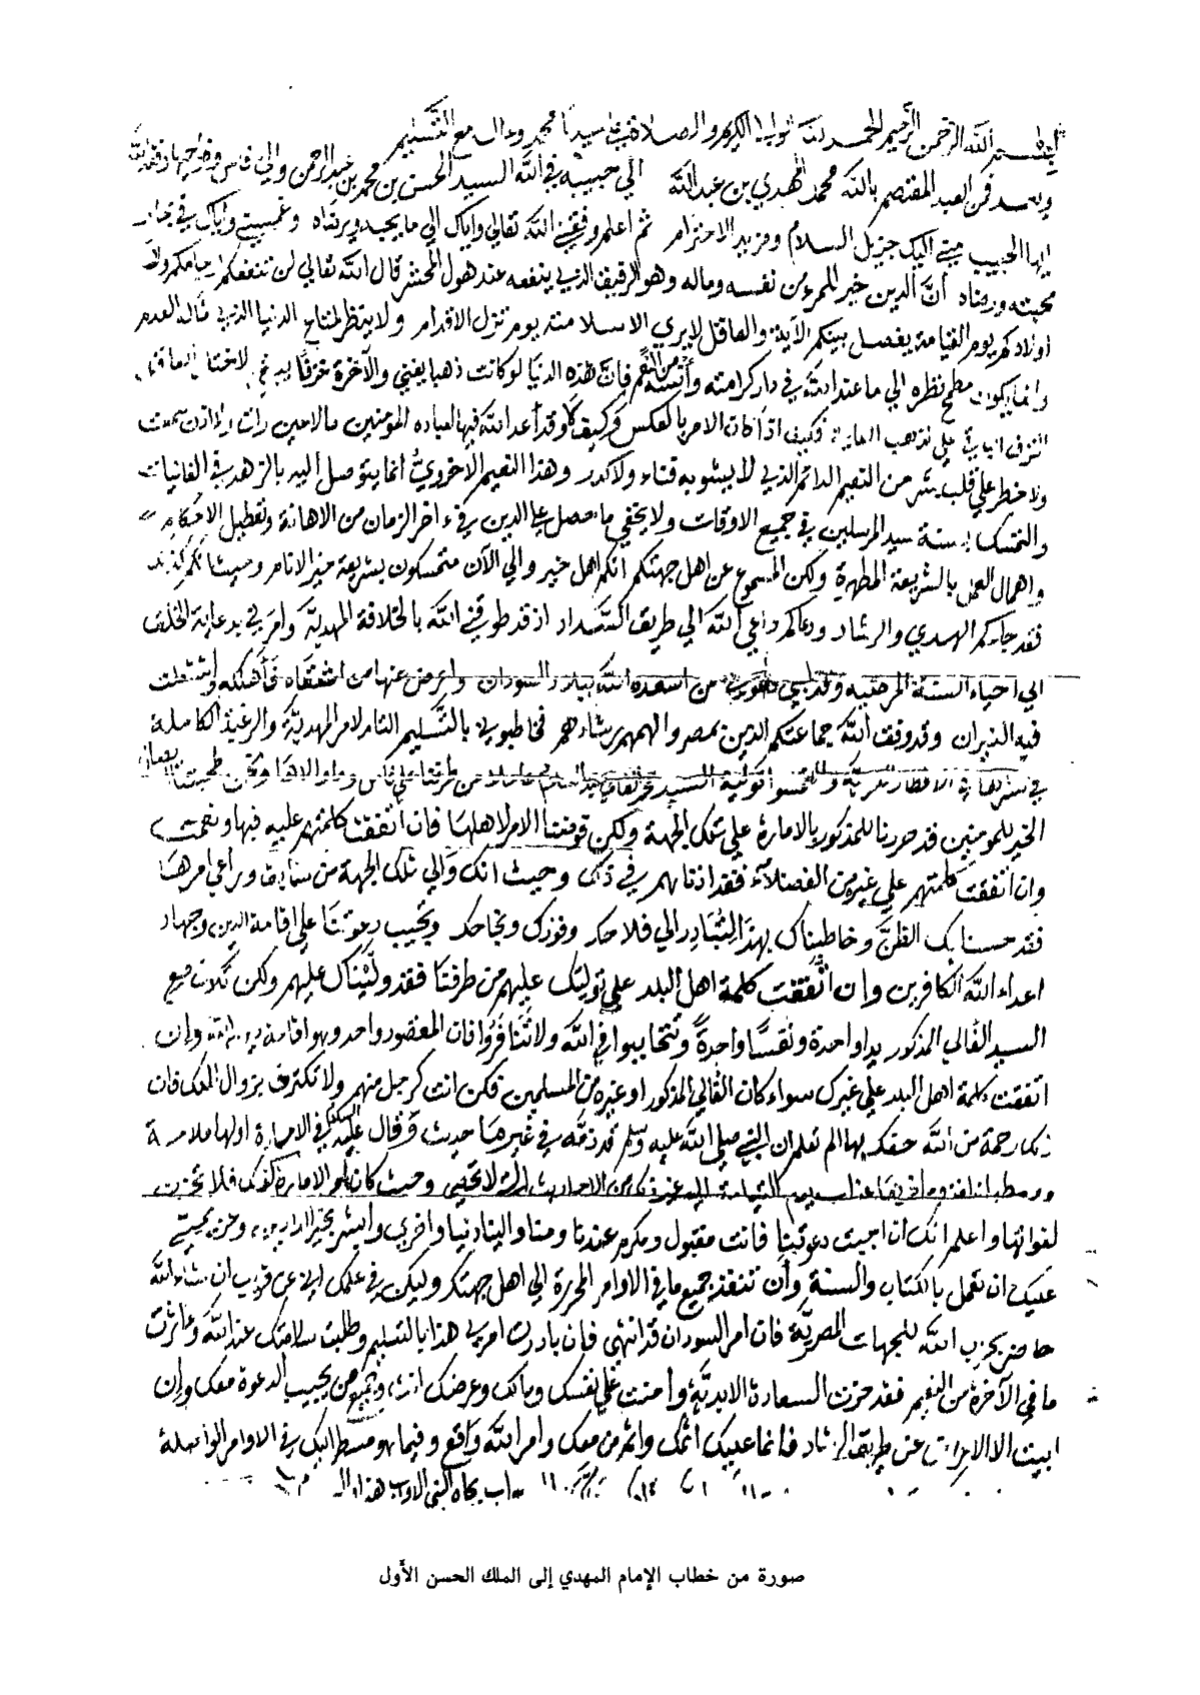 بسم الله الرحمن الرحيم الحمد لله الوالي الكريم والصلاة على سيدنا محمد وءاله مع التسليم
وبعد فمن العبد المعتصم بالله محمد المهدي بن عبد الله الى حبيبه في الله السيد الحسن بن محمد بن عبد الرحمن والي فاس
ايها الحبيب مني اليك جزيل السلام ومزيد الاحترام ثم اعلم وفقني الله تعالي واياك الي ما يحبه ويرضاه وغمسني واياك في بحار
محبته ورضاه أنّ الدين خير للمرء من نفسه وماله وهو الرفيق الذي ينفعه عند هول المحشر قال الله تعالي لن تنفعكم ارحامكم ولا
اولادكم يوم القيامة يفصل بينكم الآية والعاقل لا يري الاسلامته يوم تزل الاقدام ولا ينظر لمتاع الدنيا الذي مآله العدم
وانما يكون مطمح نظره الي ما عند الله في دار كرامته من النعم فان هذه الدنيا لو كانت ذهبا يفني والآخرة خزفا لاختار العاقل
الخزف علي الذهب فكيف اذا كان الامر بالعكس وكيف وقد أعد الله فيها لعباده المؤمنين مالا عين رأت ولا اذن سمعت
ولا خطر علي قلب بشر من النعيم الدائم الذي لا يشوبه فناء ولا كدر وهذا النعيم الاخروي انما يتوصل اليه بالزهد في الفانيات
والتمسك بسنة سيد المرسلين في جميع الاوقات ولا يخفي ما حصل علي الدين في ءاخر الزمان من الاهانة وتعطيل الاحكام
واهمال العمل بالشريعة المطهرة ولكن المسموع عن اهل جهتكم انكم اهل خير والي الآن متمسكون بشريعة خير الانام وحيث انكم كذلك
فقد جاءكم الهدي والرشاد ودعاكم داعي الله الي طريق السداد اذ قد طوقني الله بالخلافة المهدية وأمرني بدعاية الخلق
الي احياء السنة المرضية وقد لبي دعوتي من اسعده الله ببلاد السودان واعرض عنها من اشقاه فأهلكه واشتعلت
فيه النيران وقد وفق الله جماعتكم الذين بمصر والهمهم رشادهم فخاطبوني بالتسليم التام لامر المهدية والرغبة الكاملة
في نشرها في الاقطار المغربية والتمسوا تولية السيد محمد الغالي
الخير للمومنين قد حررنا للمذكور بالامارة علي تلك الجهة ولكن فوضنا الامر لاهلها فان اتفقت كلمتهم عليه فبها ونعمت
وان اتفقت كلمتهم علي غيره من الفضلاء فقد اذنا لهم في ذلك وحيث انك والي تلك الجهة من سابق وراعي امرها
فقد حسنا بك الظن وخاطبناك بهذا لتبادر الي فلاحك وفوزك ونجاحك وتجيب دعوتنا علي اقامة الدين وجهاد
اعداء الله الكافرين وان اتفقت كلمة اهل البلد علي توليتك عليهم من طرفنا فقد وليناك عليهم ولكن تكون مع
السيد الغالي المذكور يدا واحدة ونفسا واحدة وتتحاببوا في الله ولا تتنافروا فان المقصود واحد وهو اقامة دين الله وان
اتفقت كلمة اهل البلد علي غيرك سواء كان الغالي المذكور او غيره من المسلمين فكن انت كرجل منهم ولا تكترث بزوال الملك فان
ذلك رحمة من الله حفك بها الم تعلم ان النبي صلي الله عليه وسلم قد ذمه في غير ما حديث وقال عليه السلام في الامارة اولها ملامة
ووسطها ندامة وءاخرها عذاب يوم القيامة الي غير ذلك من الاحاديث التي لا تخفي وحيث كان امر الامارة كذلك فلا تحزن
لفواتها واعلم انك ان اجبت دعوتنا فانت مقبول ومكرم عندنا ومنا والينا دنيا واخري وابشر بخير الدارين وحينئذ يجب
عليك ان تعمل بالكتاب والسنة وأن تنفذ جميع ما في الاوامر المحررة الي اهل جهتكم وليكن في علمك اني عن قريب ان شاء الله
حاضر بحزب الله للجهات المصرية فان امر السودان قد انتهي فان بادرت امري هذا بالتسليم وطلبت سلامتك عند الله وءاثرت
ما في الآخرة من النعيم فقد حزت السعادة الابدية وأمنت علي نفسك ومالك وعرضك انت وجميع من يجيب الدعوة معك وان
ابيت الا الاعراض عن طريق الرشاد فانما عليك اثمك واثم من معك وامر الله واقع وفيما هو مسطر اليك في الاوامر الواصلة
صورة من خطاب الإمام المهدي إلى الملك الحسن الأول